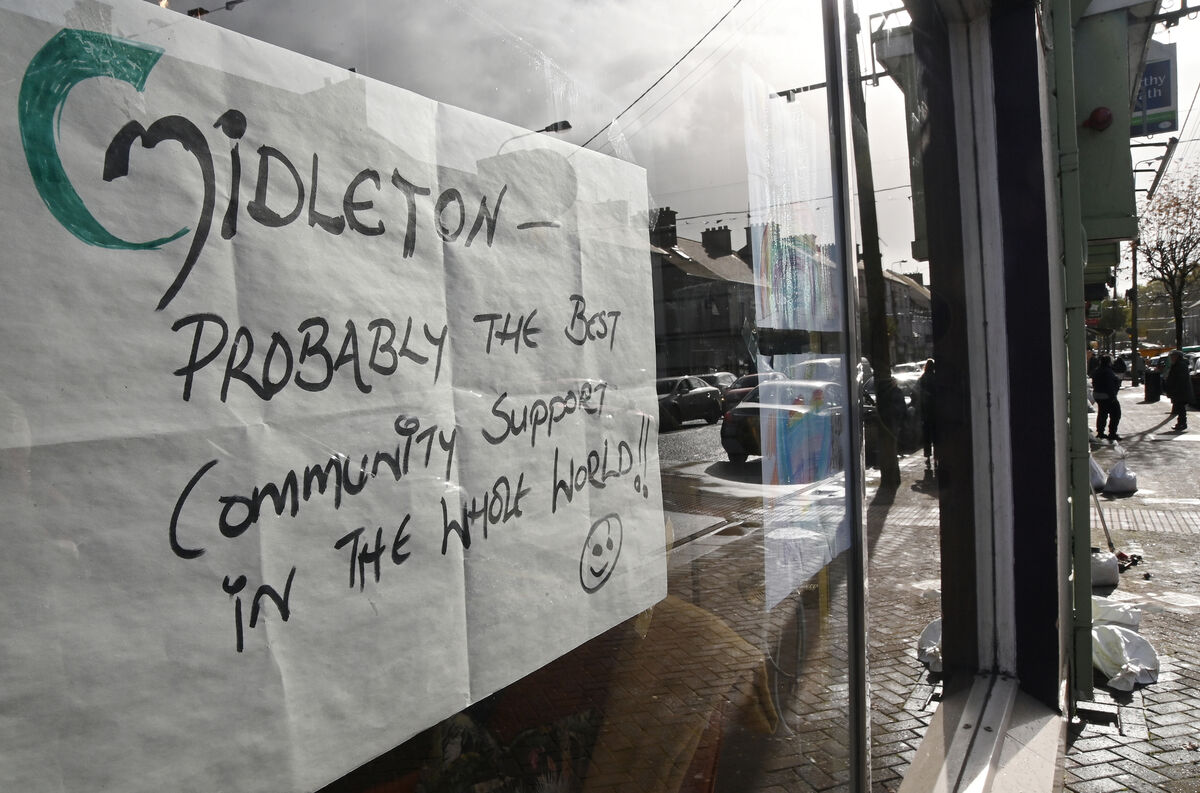 MIDLETON –
PROBABLY THE BEST
COMMUNITY SUPPORT
IN THE WHOLE WORLD!!